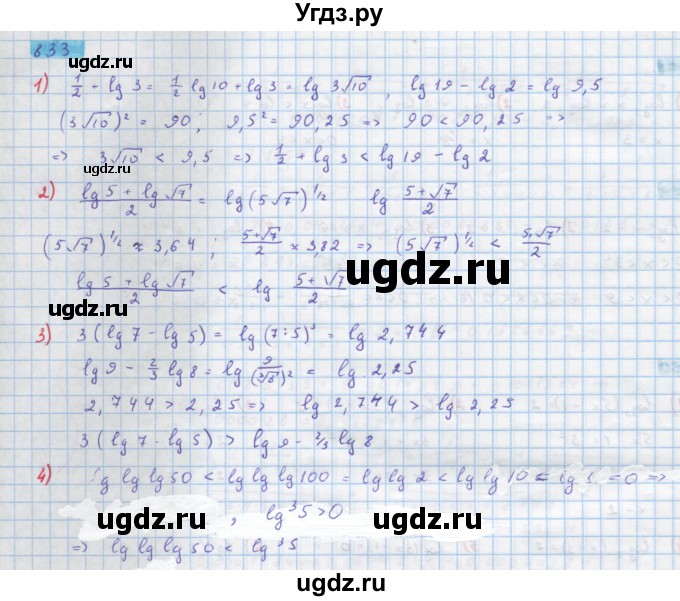 Угдз.ру
833
1) 1/2 + lg 3 = 1/2 lg 10 + lg 3 = lg 3√10 , lg 19 − lg 2 = lg 9,5
(3√10)² = 90; 9,5² = 90,25 => 90 < 90,25 =>
=> 3√10 < 9,5 => 1/2 + lg 3 < lg 19 − lg 2
2) (lg 5 + lg √7)/2 = lg (5√7)^1/2 lg (5+√7)/2
(5√7)^1/2 ≈ 3,64 ; (5+√7)/2 ≈ 3,82 => (5√7)^1/2 < (5+√7)/2
(lg 5 + lg √7)/2 < lg (5+√7)/2
3) 3(lg 7 − lg 5) = lg (7:5)³ = lg 2,744
lg 9 − 2/3 lg 8 = lg 9/(³√8)² = lg 2,25
2,744 > 2,25 => lg 2,744 > lg 2,25
3(lg 7 − lg 5) > lg 9 − 2/3 lg 8
4) lg lg lg 50 < lg lg lg 100 = lg lg 2 < lg lg 10 = lg 1 = 0 =>
, lg³5 > 0
=> lg lg lg 50 < lg³5
ugdz.ru
ugdz.ru
ugdz.ru
ugdz.ru
ugdz.ru
ugdz.ru
ugdz.ru
ugdz.ru
ugdz.ru
ugdz.ru